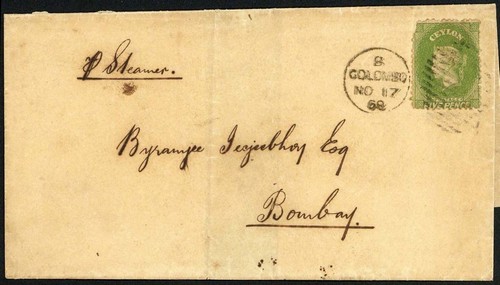 CEYLON
℘ Steamer.
8
COLOMBO
NO 17
68
Byramjee Jejeebhoy Esq
Bombay.